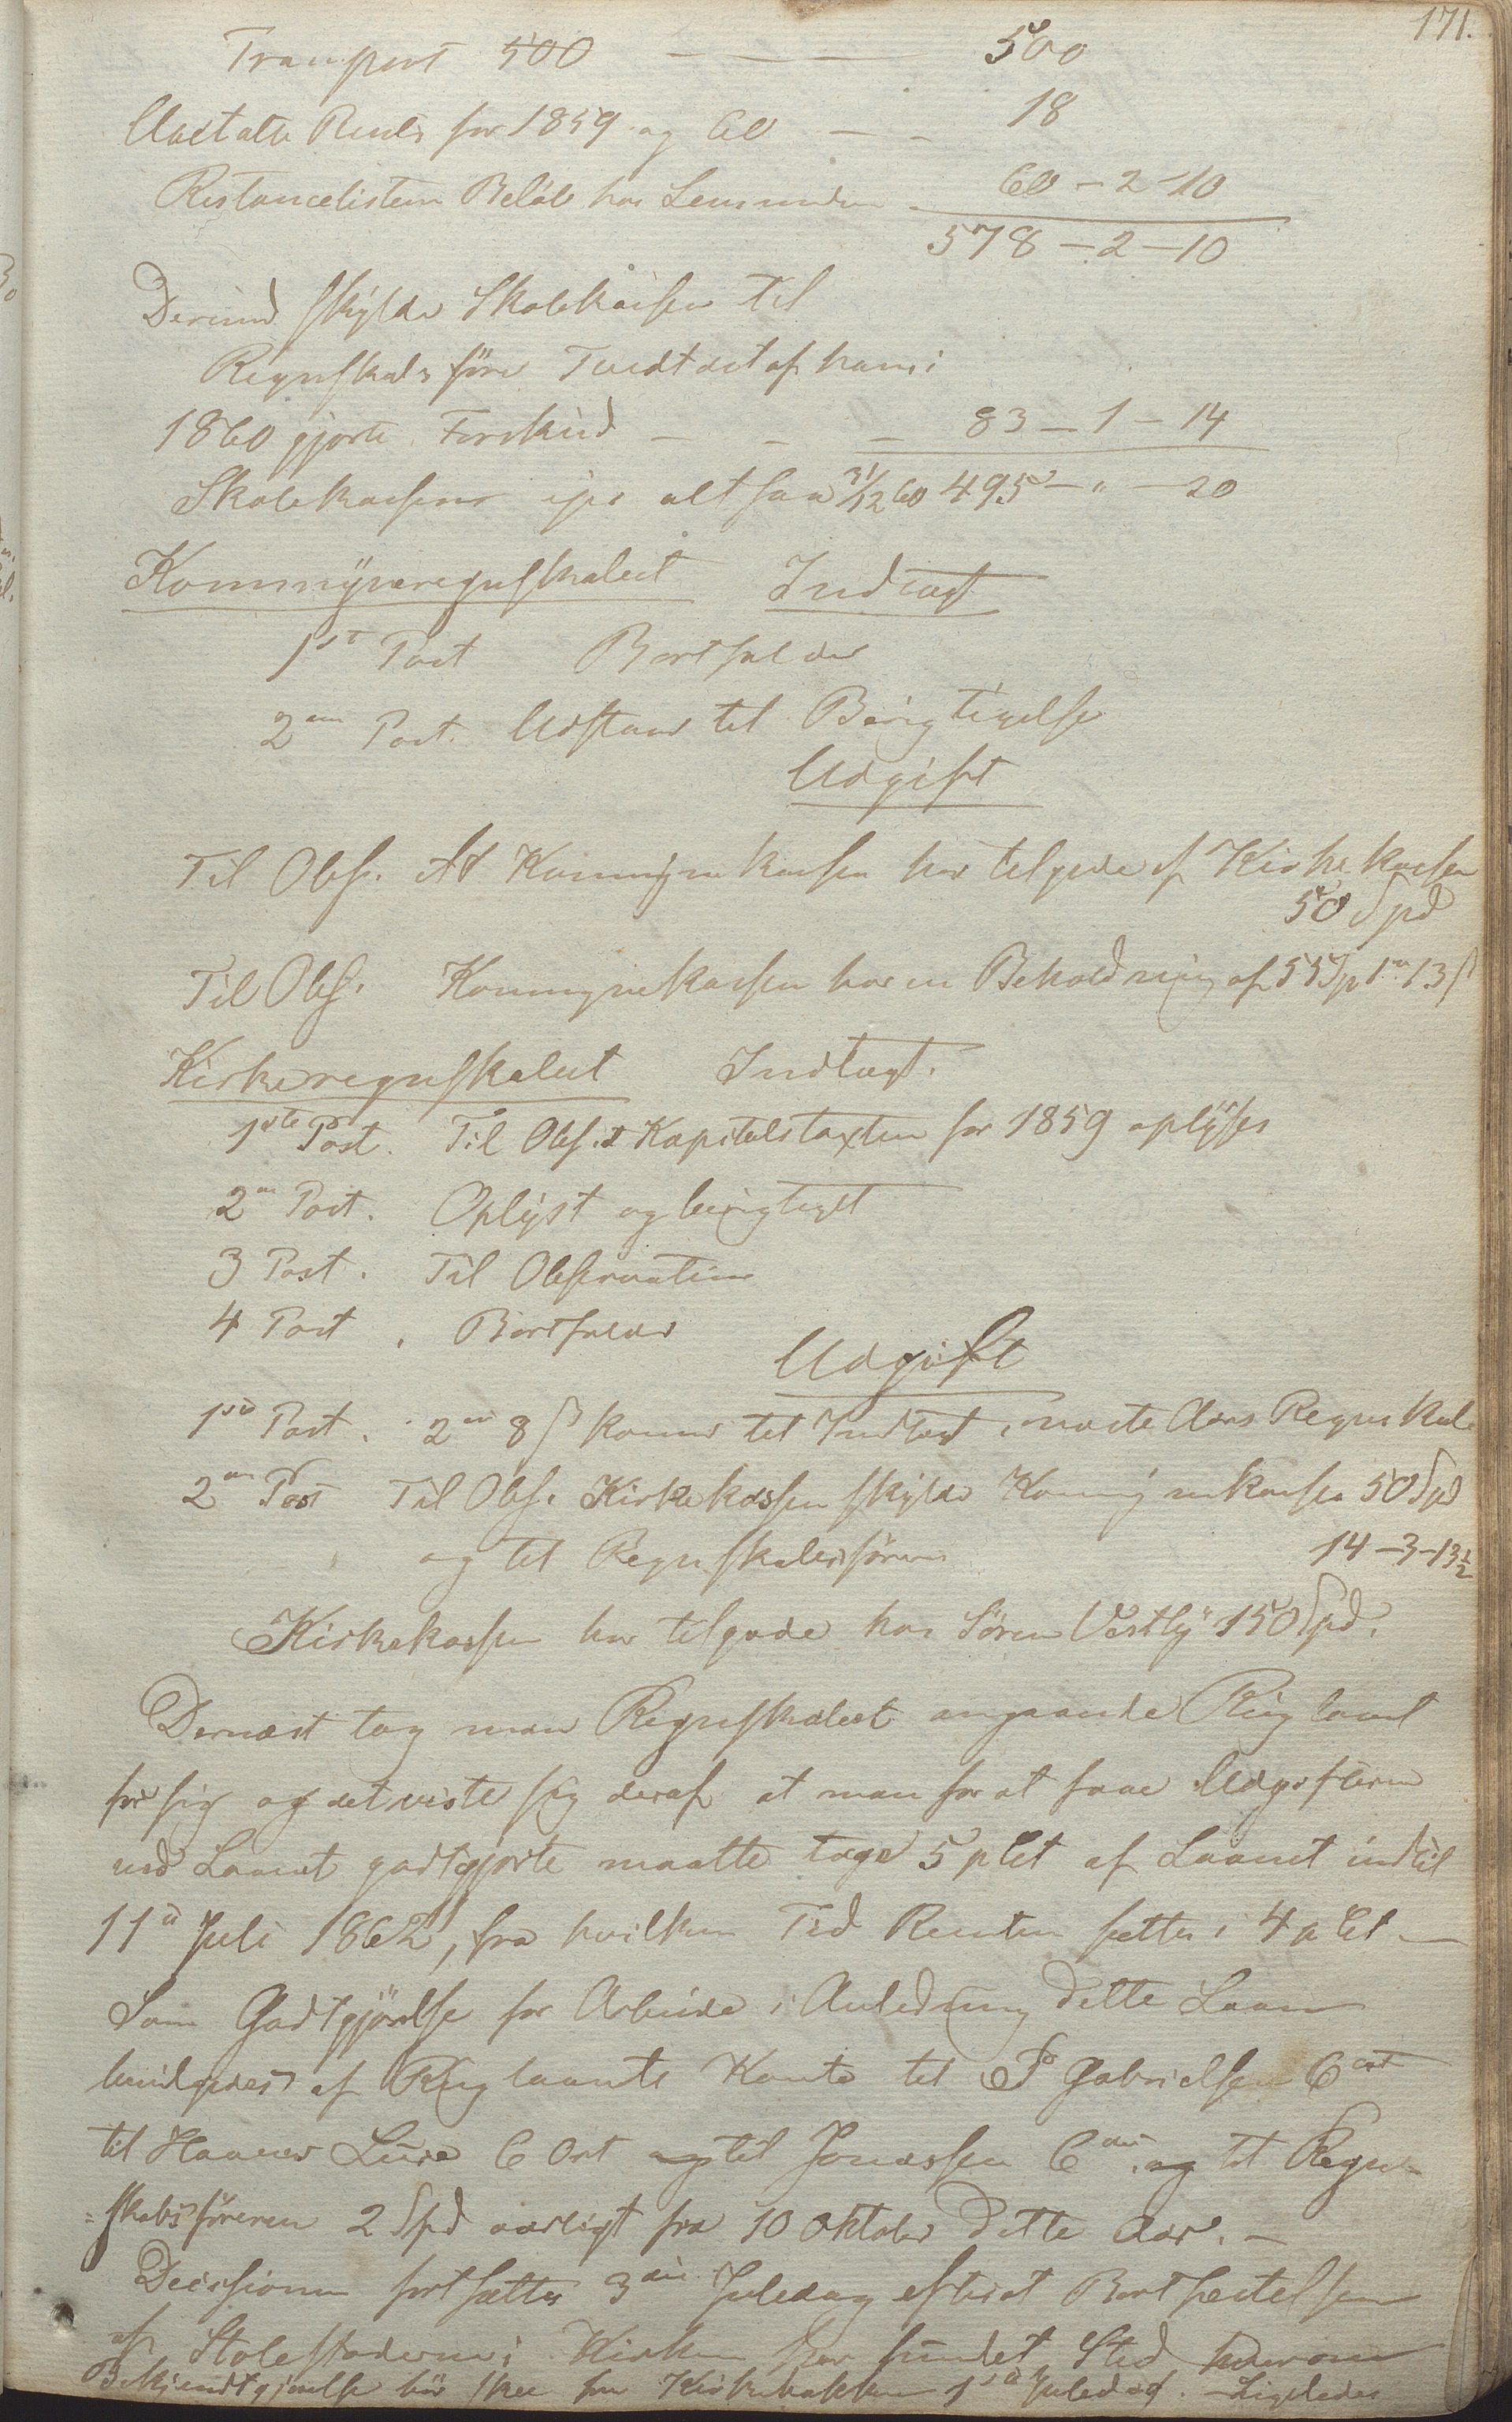 171.
Transport 500 — — — 500
Uudtalte Rente for 1859 og 60 — — 18
Restancelisten Beløb hos Lensmanden 60 - 2 - 10
578 - 2 - 10
Derimod skylder Skolekassen til
Regnskabsfører Tvedt det af ham i
1860 gjorte Forskud — — — 83 - 1 - 14
Skolekassens altsaa 31/12 60 495 - " - 20
Kommuneregnskabet Indtægt
1ste Post Bortfalder
2den Post. Udstaar til Berigtigelse
Udgift
Til Obs. At Kommunekassen har tilgode af Kirkekassen
50 Spd
Til Obs. Kommunekassen har en Beholdning af 55 Sp 1 ort 13 s
Kirkeregnskabet Indtægt.
1ste Post. Til Obs. at Kapitelstaxten for 1859 oplyses
2den Post. Oplyst og berigtiget
3 Post. Til Observation
4 Post. Bortfalder
Udgift
1ste Post. 2 ort 8 s kommer til Indtægt i næste Aars Regnskab
2den Post Til Obs. Kirkekassen skylder Kommunekassen 50 Spd
og til Regnskabsføreren 14 - 3 - 13½
Kirkekassen har tilgode hos Sören Vestly 150 Spd.
Dernæst tog man Regnskabet angaaende Ruglaanet
for sig og det viste sig deraf at man for at faae Udgifterne
ved Laanet godtgjorte maatte tage 5 pCt af Laanet indtil
11te Juli 1862, fra hvilken Tid Renten sættes i 4 p Ct —
Som Godtgjörelse for Arbeide i Anledning dette Laan
bevilgedes af Ruglaanets Konto til P Gabrielsen 6 ort
til Haaver Lura 6 Ort og til Jonassen 6 ort og til Regn=
=skabsföreren 2 Spd aarligt fra 10 Oktober dette Aar. —
Decisionen fortsættes 3die Juledag efterat Bortfæstelsen
af Stolestaderne i Kirken har fundet Sted hvorom
Bekjendtgjörelse bör skee fra Kirkebakken 1ste Juledag. — Ligeledes